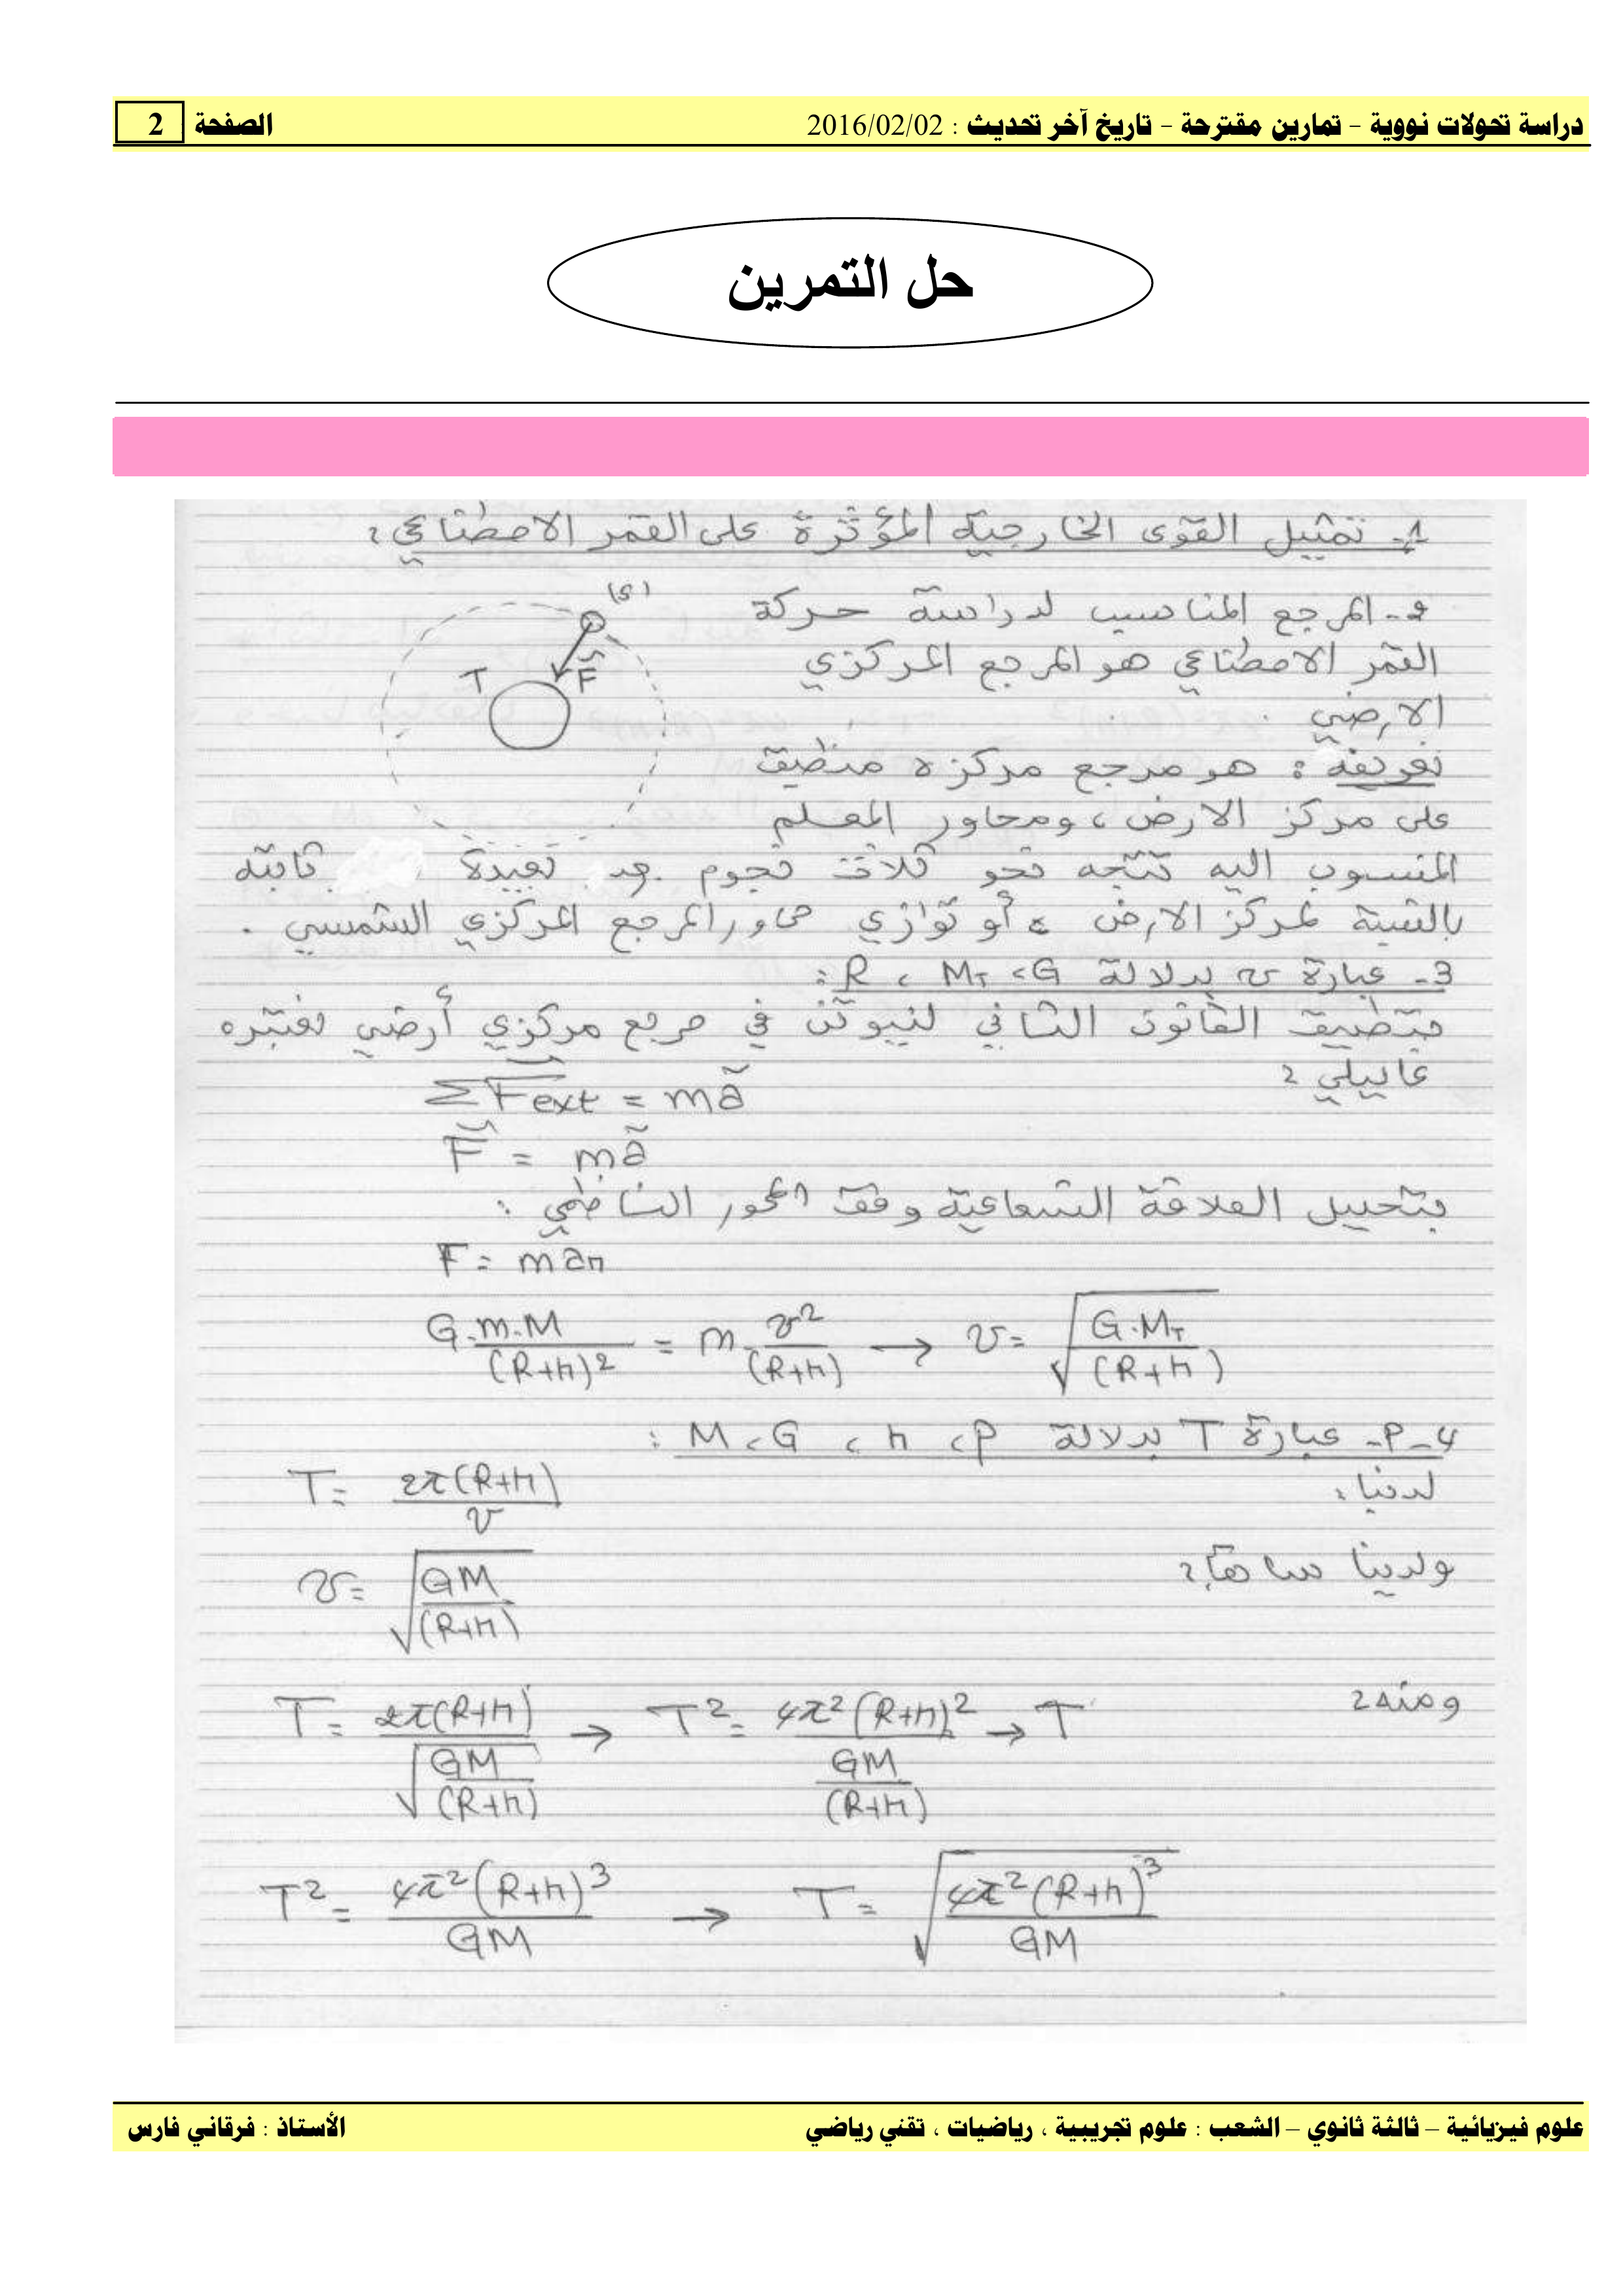 دراسة تحولات نووية - تمارين مقترحة - تاريخ آخر تحديث : 2016/02/02 الصفحة 2
حل التمرين
1- تمثيل القوى الخارجية المؤثرة على القمر الاصطناعي :
(S)
T
F
2- المرجع المناسب لدراسة حركة
القمر الاصطناعي هو المرجع المركزي
الارضي .
تعريفه : هو مرجع مركزه منطبق
على مركز الارض ، ومحاور المعلم
المنسوب اليه تتجه نحو ثلاث نجوم جد بعيدة ثابتة
بالنسبة لمركز الارض ، أو توازي محاور المرجع المركزي الشمسي .
3- عبارة v بدلالة G ، M_T ، R :
بتطبيق القانون الثاني لنيوتن في مرجع مركزي أرضي نعتبره
غاليلي :
ΣF_ext = ma
F = ma
بتحليل العلاقة الشعاعية وفق المحور الناظمي :
F = m a_n
G.m.M/(R+h)² = m . v²/(R+h) → v = √(G.M_T/(R+h))
4-P- عبارة T بدلالة P ، h ، G ، M :
لدينا :
T = 2π(R+h)/v
ولدينا سابقا :
v = √(GM/(R+h))
ومنه :
T = 2π(R+h)/√(GM/(R+h)) → T² = 4π²(R+h)²/(GM/(R+h)) → T
T² = 4π²(R+h)³/GM → T = √(4π²(R+h)³/GM)
علوم فيزيائية – ثالثة ثانوي – الشعب : علوم تجريبية ، رياضيات ، تقني رياضي الأستاذ : فرقاني فارس